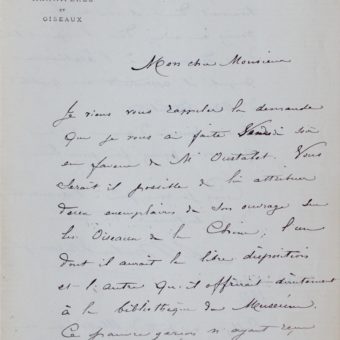 ET
OISEAUX
Mon cher Monsieur
Je viens vous rappeler la demande
que je vous ai faite Vendredi soir
en faveur de Mr Oustalet. Vous
serait il possible de lui attribuer
deux exemplaires de son ouvrage sur
les Oiseaux de la Chine; l'un
dont il aurait la libre disposition
et l'autre qu'il offrirait directement
à la bibliothèque du Muséum.
Ce pauvre garçon n'ayant reçu